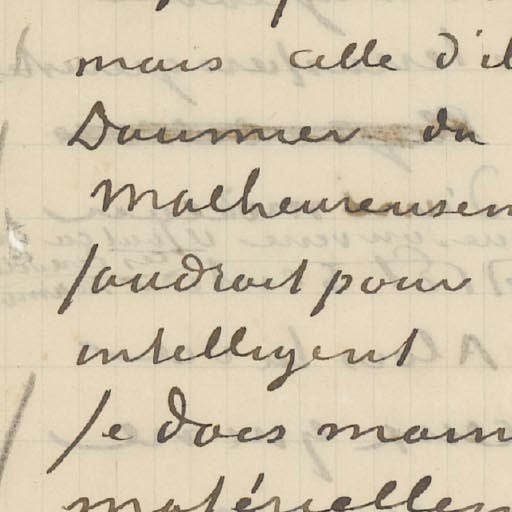 mais celle d'il
Daumier du
Malheureusem
faudrait pour
intelligent
Je dois main
matérielles